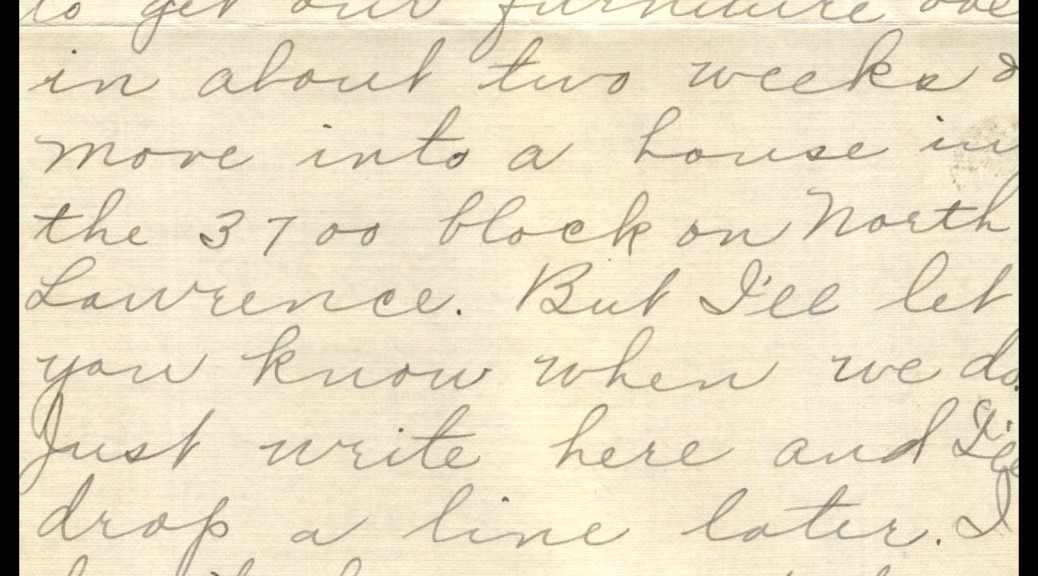 to get our furniture
in about two weeks &
move into a house in
the 3700 block on North
Lawrence. But I'll let
you know when we do.
Just write here and I'll
drop a line later. I